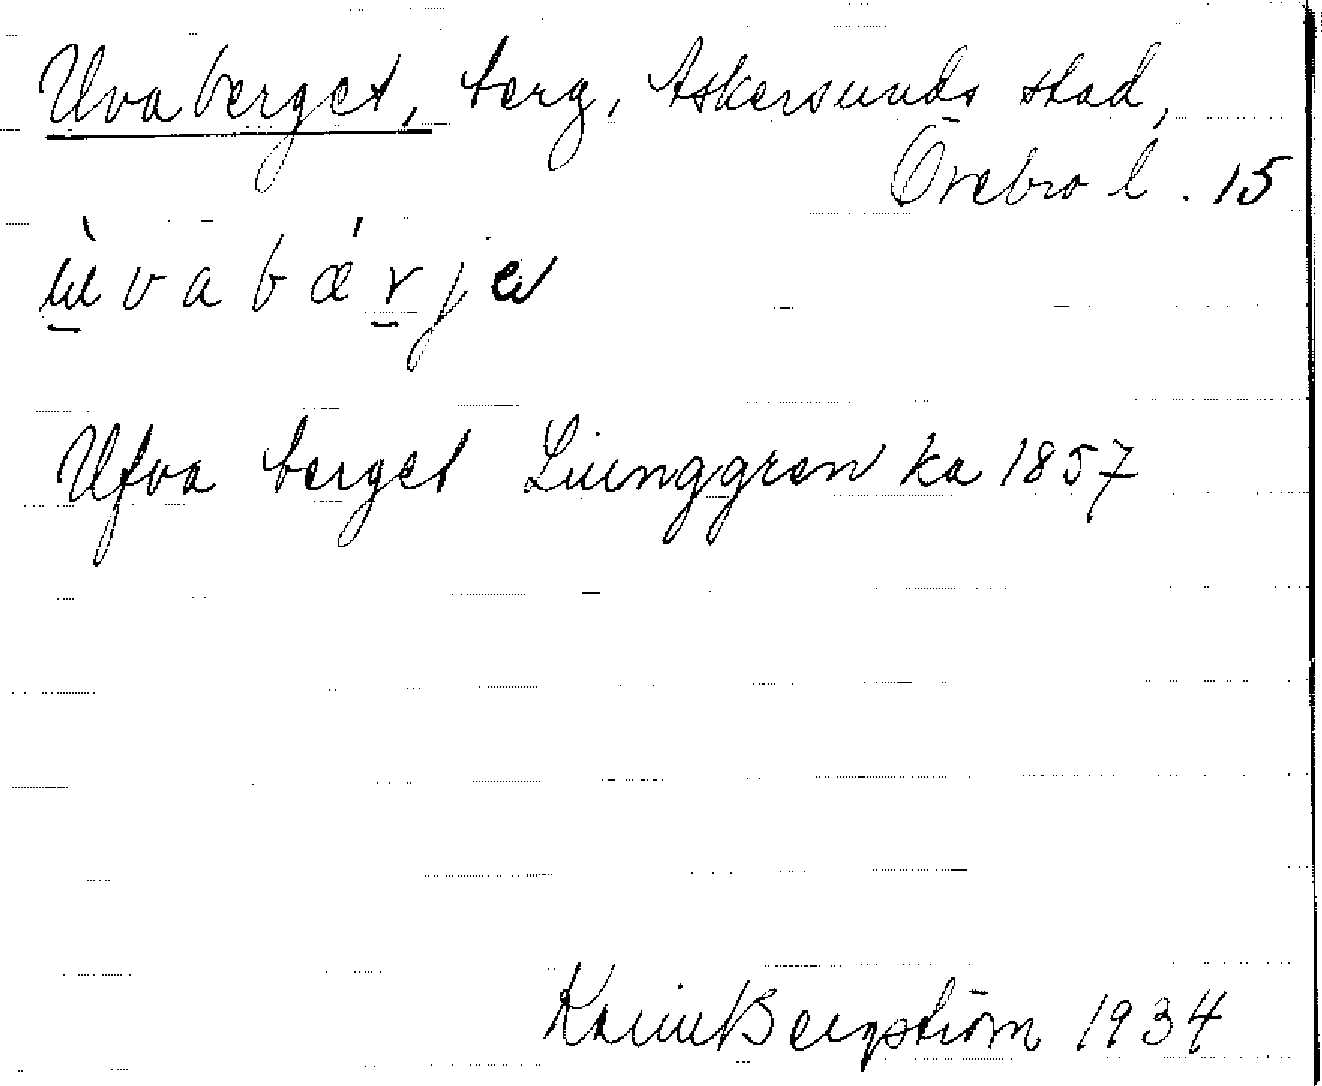 Uvaberget, berg, Askersunds stad,
Örebro l. 15
Ufva berget Liunggren ka 1857
Karin Bergström 1934